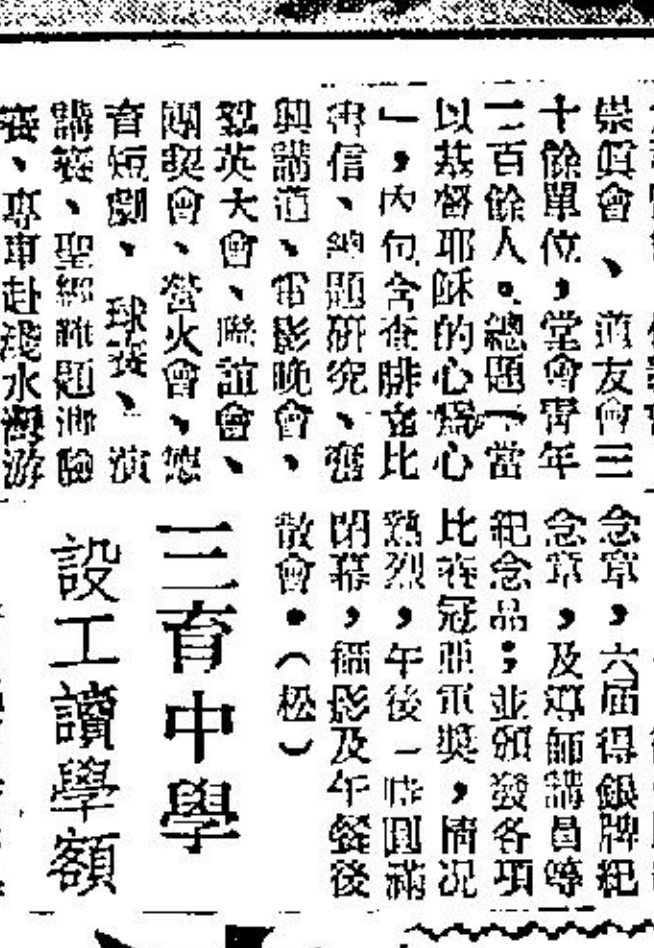 崇眞會、道友會三
十餘單位，堂會青年
二百餘人。總題「當
以基督耶穌的心爲心
」，內包含查腓立比
書信、總題研究、奮
興講道、電影晚會、
英大會、聯誼會、
團契會、營火會、德
育短劇、球賽、演
講賽、聖經難題測驗
賽、專車赴淺水灣游
念章，六屆得銀牌紀
念章，及導師講員等
紀念品；並頒發各項
比賽冠亞軍獎，情況
熱烈，午後一時圓滿
閉幕，攝影及午餐後
散會。（松）
三育中學
設工讀學額